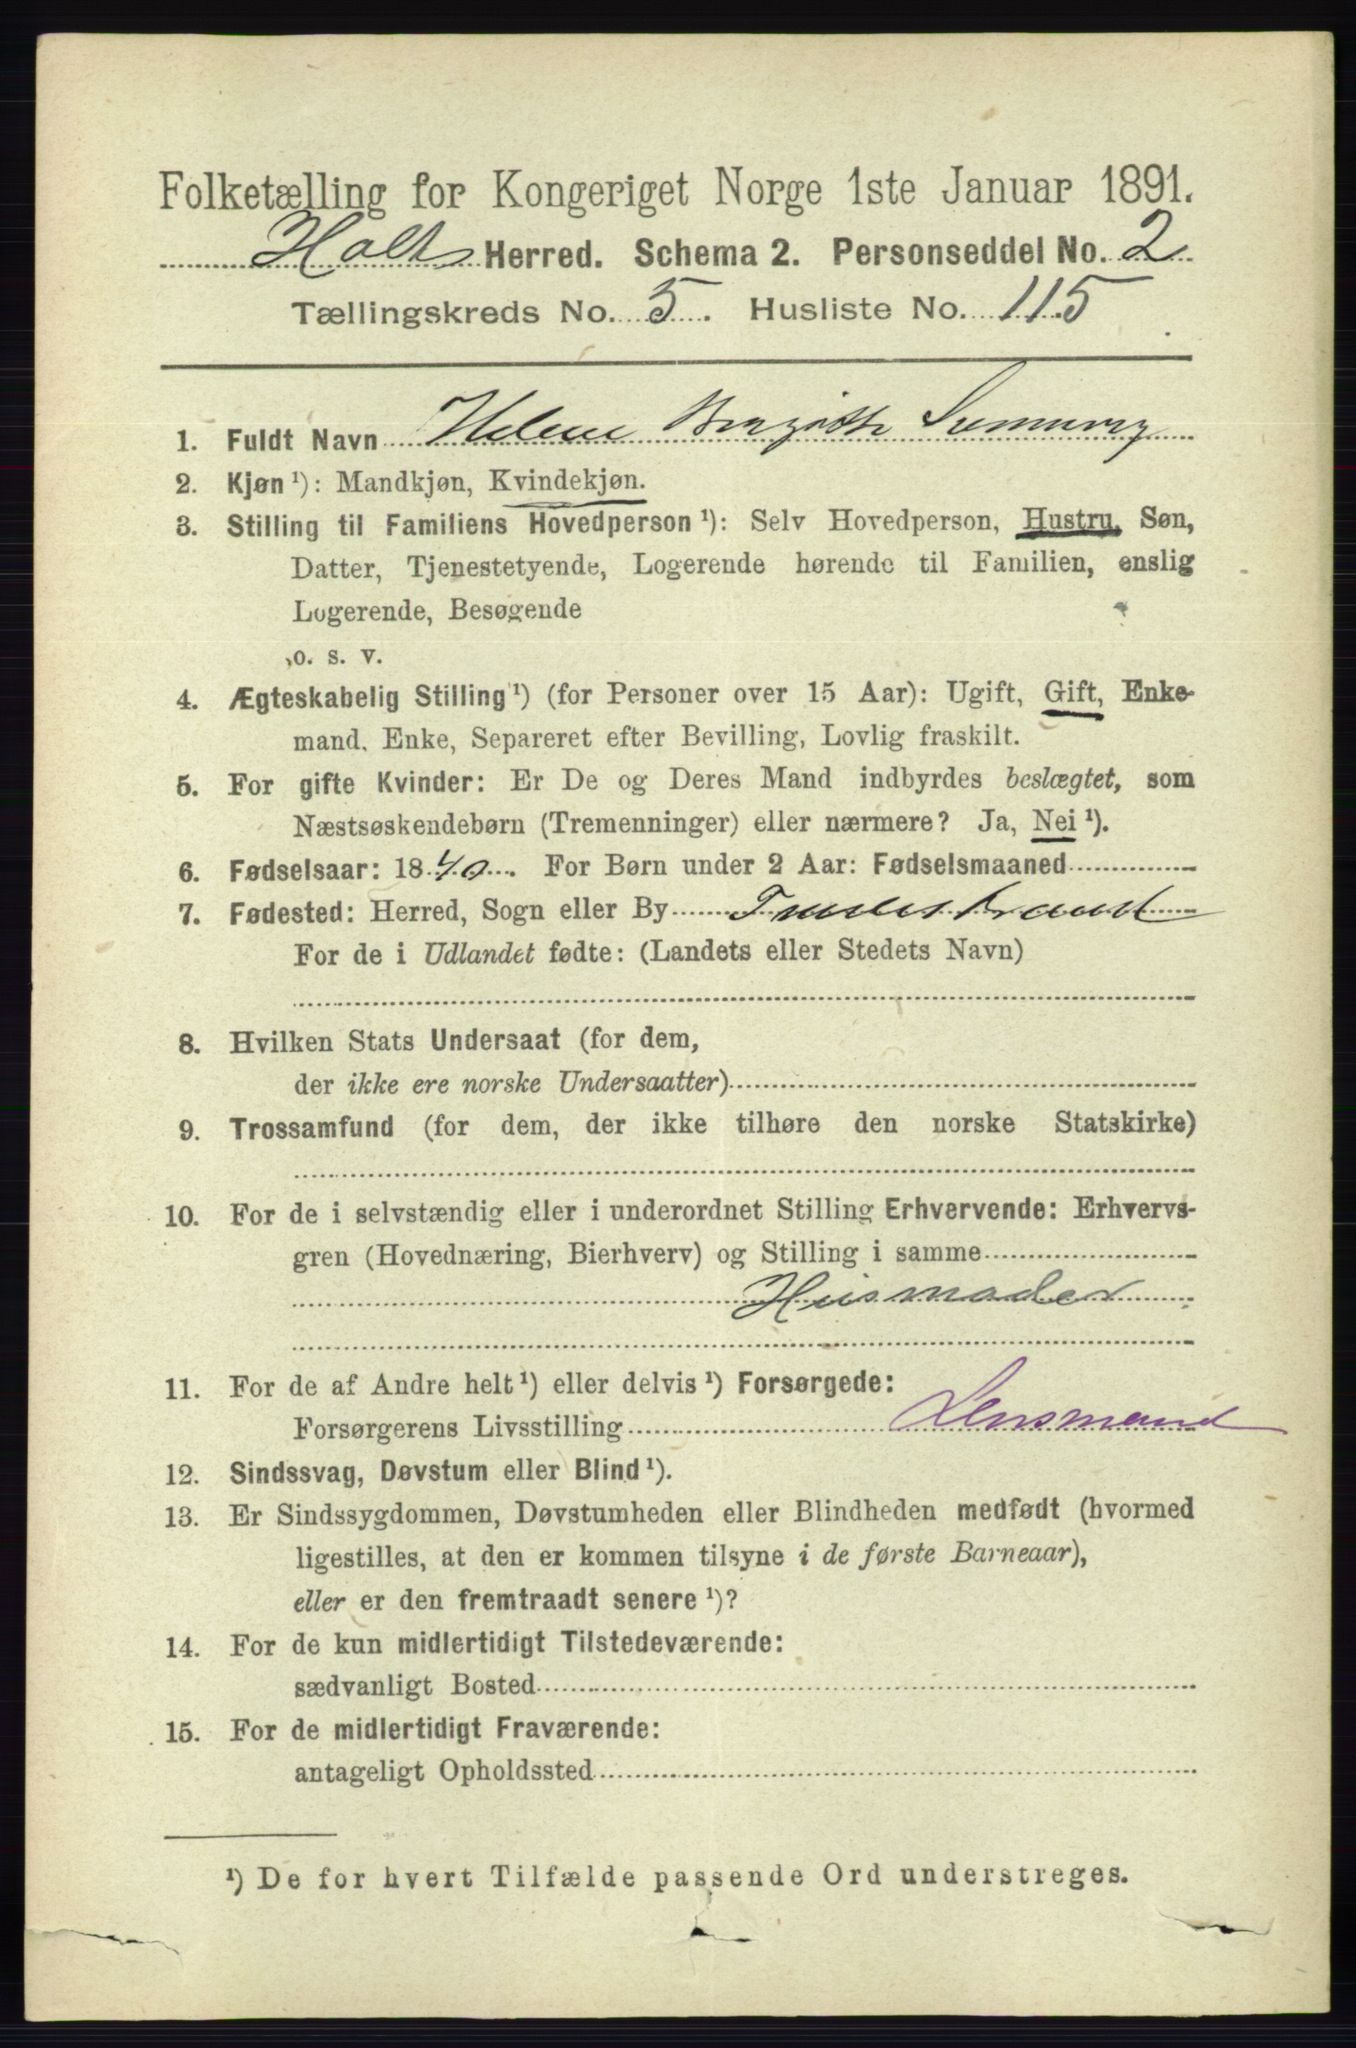 Folketælling for Kongeriget Norge 1ste Januar 1891.
Holt Herred. Schema 2. Personseddel No. 2
Tællingskreds No. 5. Husliste No. 115
1. Fuldt Navn Helene Birgitte
2. Kjøn ¹): Mandkjøn, Kvindekjøn.
3. Stilling til Familiens Hovedperson ¹): Selv Hovedperson, Hustru, Søn,
Datter, Tjenestetyende, Logerende hørende til Familien, enslig
Logerende, Besøgende
o. s. v.
4. Ægteskabelig Stilling ¹) (for Personer over 15 Aar): Ugift, Gift, Enke-
mand, Enke, Separeret efter Bevilling, Lovlig fraskilt.
5. For gifte Kvinder: Er De og Deres Mand indbyrdes beslægtet, som
Næstsøskendebørn (Tremenninger) eller nærmere? Ja, Nei ¹).
6. Fødselsaar: 1840. For Børn under 2 Aar: Fødselsmaaned
7. Fødested: Herred, Sogn eller By Tvedestrand
For de i Udlandet fødte: (Landets eller Stedets Navn)
8. Hvilken Stats Undersaat (for dem,
der ikke ere norske Undersaatter)
9. Trossamfund (for dem, der ikke tilhøre den norske Statskirke)
10. For de i selvstændig eller i underordnet Stilling Erhvervende: Erhvervs-
gren (Hovednæring, Bierhverv) og Stilling i samme
Husmoder
11. For de af Andre helt ¹) eller delvis ¹) Forsørgede:
Forsørgerens Livsstilling Lensmand
12. Sindssvag, Døvstum eller Blind ¹).
13. Er Sindssygdommen, Døvstumheden eller Blindheden medfødt (hvormed
ligestilles, at den er kommen tilsyne i de første Barneaar),
eller er den fremtraadt senere ¹)?
14. For de kun midlertidigt Tilstedeværende:
sædvanligt Bosted
15. For de midlertidigt Fraværende:
antageligt Opholdssted
¹) De for hvert Tilfælde passende Ord understreges.